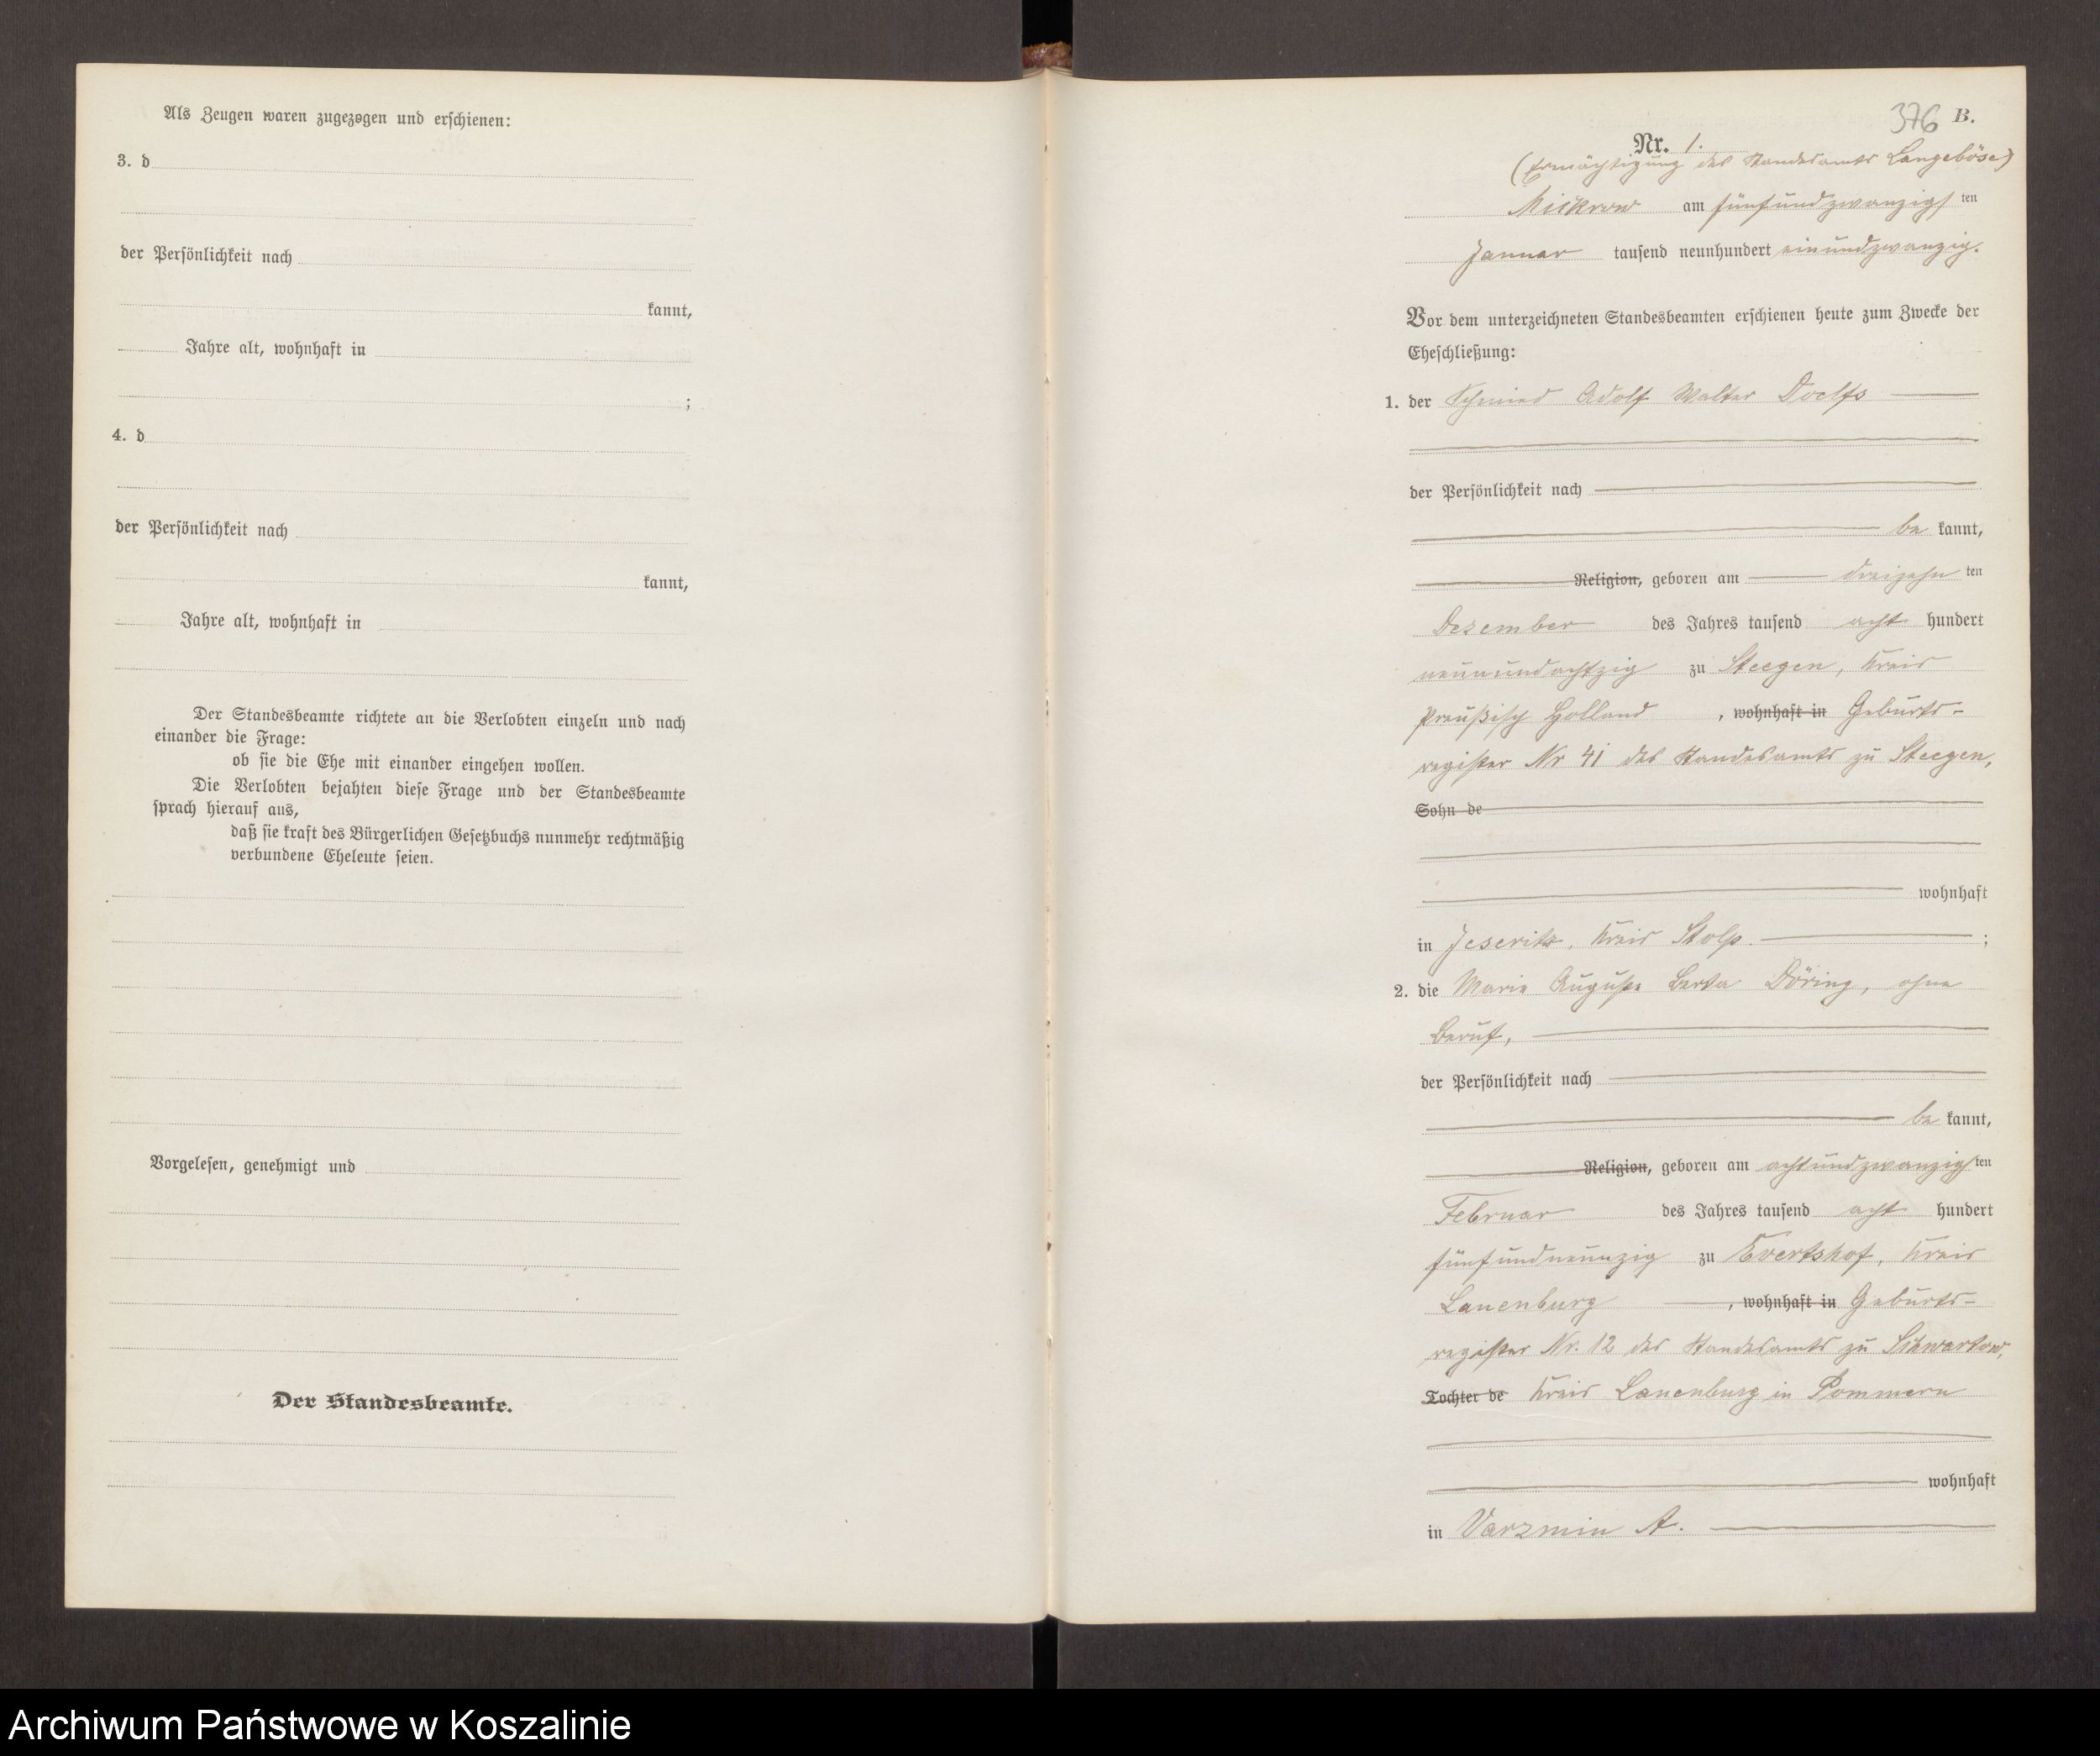 Als Zeugen waren zugezogen und erschienen:
3. d
der Persönlichkeit nach
kannt,
Jahre alt, wohnhaft in
;
4. d
der Persönlichkeit nach
kannt,
Jahre alt, wohnhaft in
Der Standesbeamte richtete an die Verlobten einzeln und nach
einander die Frage:
ob sie die Ehe mit einander eingehen wollen.
Die Verlobten bejahten diese Frage und der Standesbeamte
sprach hierauf aus,
daß sie kraft des Bürgerlichen Gesetzbuchs nunmehr rechtmäßig
verbundene Eheleute seien.
Vorgelesen, genehmigt und
Der Standesbeamte.
376 B.
Nr. 1.
(Ermächtigung des Standesamts Langeböse)
Mickrow am fünfundzwanzigsten
Januar tausend neunhundert einundzwanzig.
Vor dem unterzeichneten Standesbeamten erschienen heute zum Zwecke der
Eheschließung:
1. der Schmied Adolf Walter Doelfs
der Persönlichkeit nach
be kannt,
Religion, geboren am dreizehn ten
Dezember des Jahres tausend acht hundert
neunundachtzig zu Steegen, Kreis
Preußisch Holland , wohnhaft in Geburts-
register Nr 41 des Standesamts zu Steegen,
Sohn de
wohnhaft
in Jeseritz, Kreis Stolp. ;
2. die Marie Auguste Berta Döring, ohne
Beruf,
der Persönlichkeit nach
be kannt,
Religion, geboren am achtundzwanzigsten
Februar des Jahres tausend acht hundert
fünfundneunzig zu Evertshof, Kreis
Lauenburg , wohnhaft in Geburts-
register Nr. 12 des Standesamts zu Schwartow,
Tochter de Kreis Lauenburg in Pommern
wohnhaft
in Varzmin A.
Archiwum Państwowe w Koszalinie